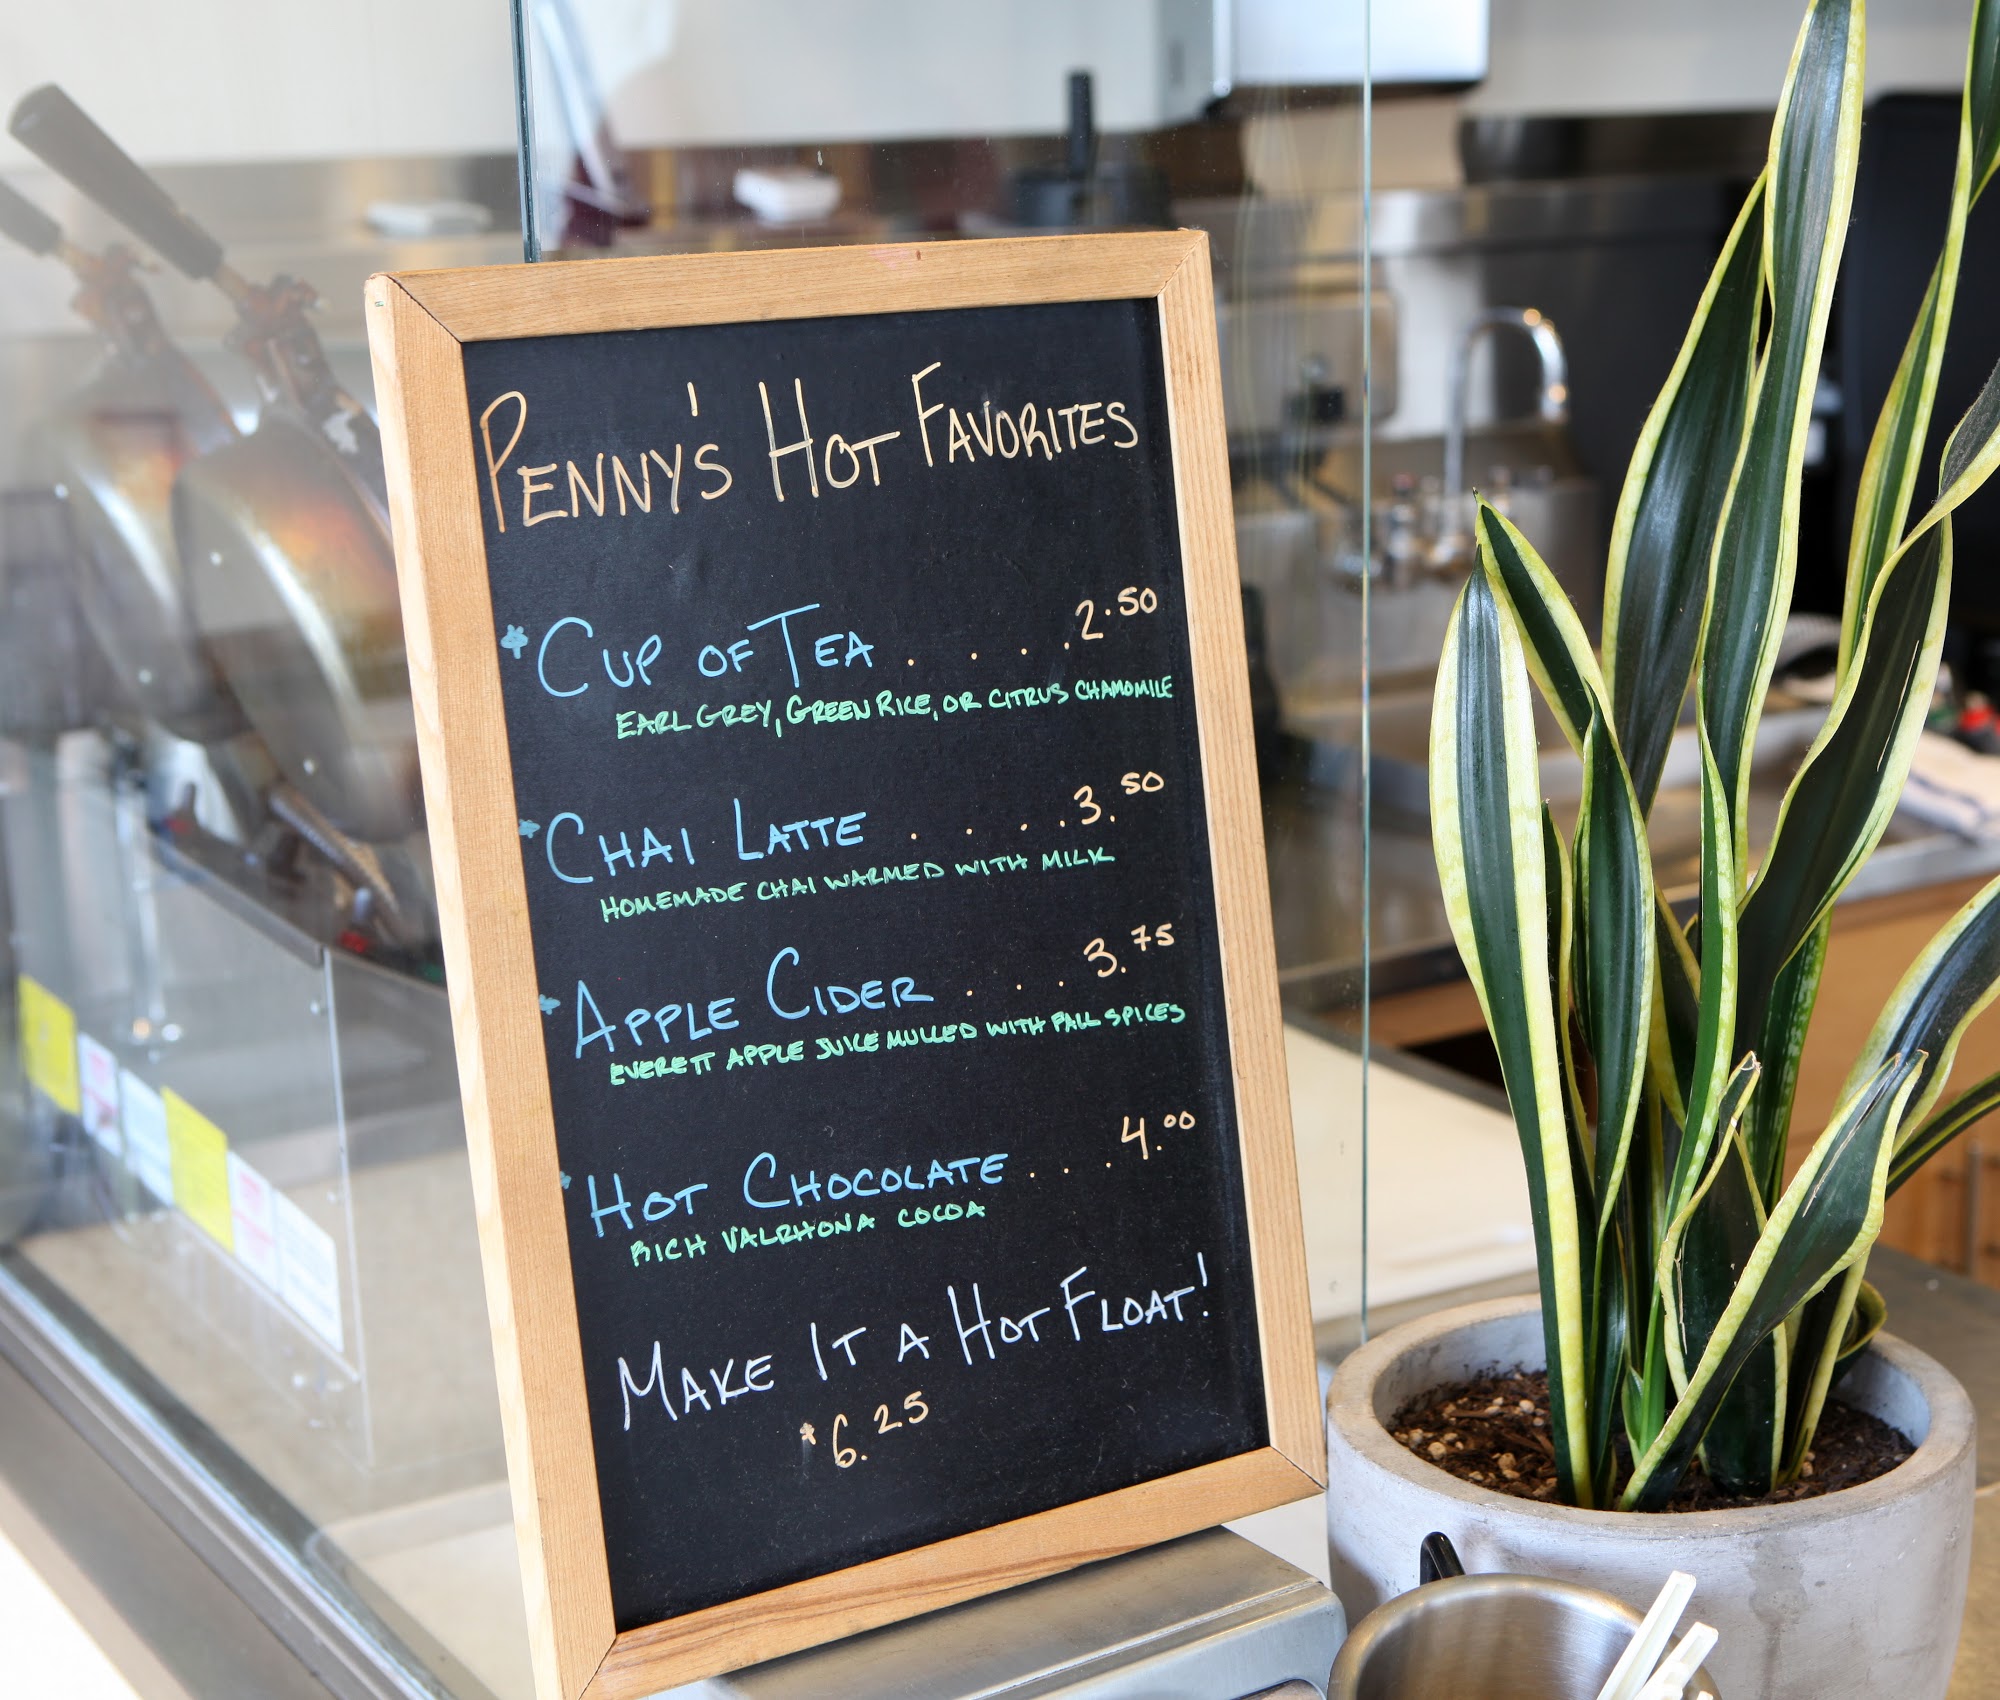 PENNY'S HOT FAVORITES
* CUP OF TEA . . . . . 2.50
EARL GREY, GREEN RICE, OR CITRUS CHAMOMILE
* CHAI LATTE . . . . . 3.50
HOMEMADE CHAI WARMED WITH MILK
* APPLE CIDER . . . . 3.75
EVERETT APPLE JUICE MULLED WITH FALL SPICES
* HOT CHOCOLATE . . . 4.00
RICH VALRHONA COCOA
MAKE IT A HOT FLOAT!
*6.25